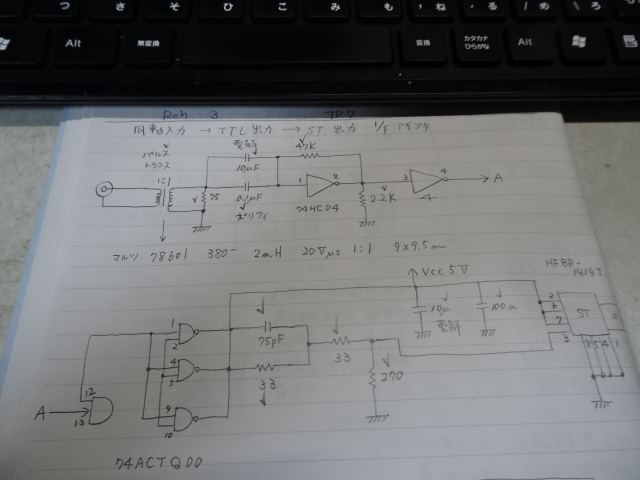 つ さ そ ひ こ み も ね る め
Alt 無変換 変換 カタカナ ひらがな Alt
同軸入力 → TTL出力 → ST出力 I/F アダプタ
パルス 電解 47K
トランス 10μF
1:1 1 2 3 4 A
75 0.1μF 74HC04 2.2K
ポリフィ
マルツ 78601 380- 2mH 20Vμs 1:1 9×9.5m
HFBR-
1414T
Vcc 5V
10μ 100n
電解
2 6 7 3 ST
1 2 75pF 33
4 5 33 270
12 13 A
9 10
74ACTQ00